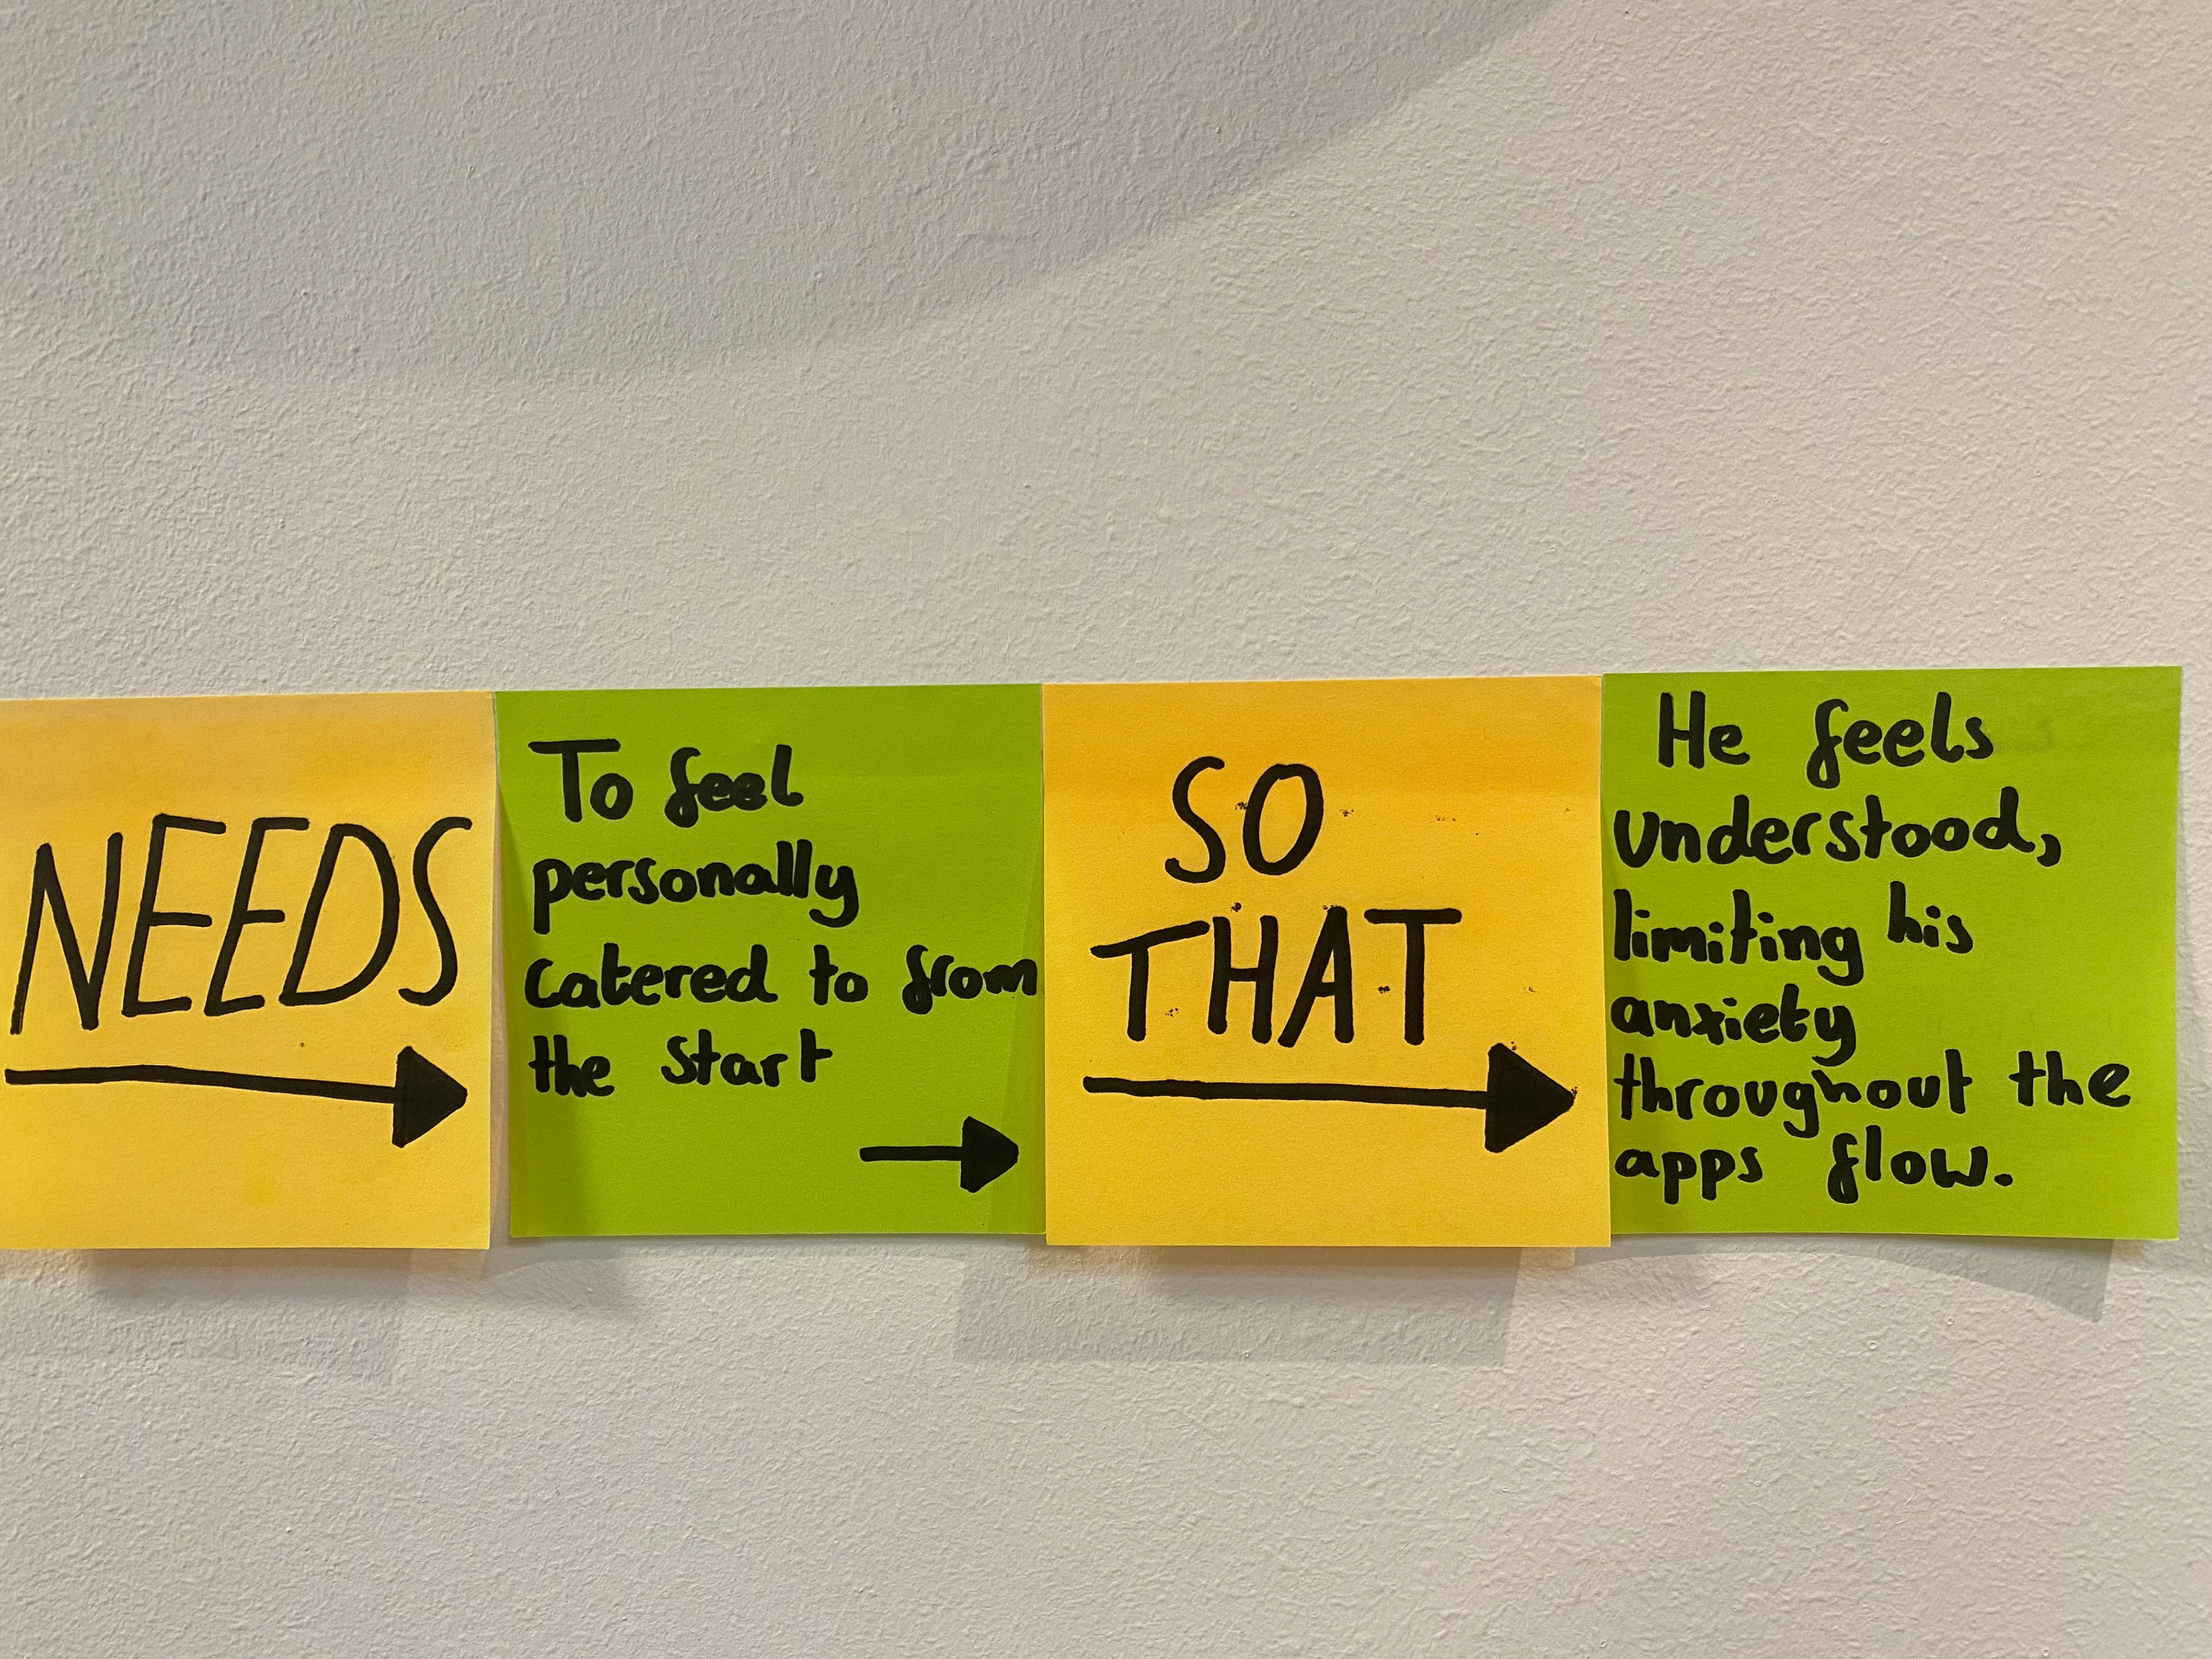 NEEDS
To feel
personally
catered to from
the start
SO
THAT
He feels
understood,
limiting his
anxiety
throughout the
apps flow.